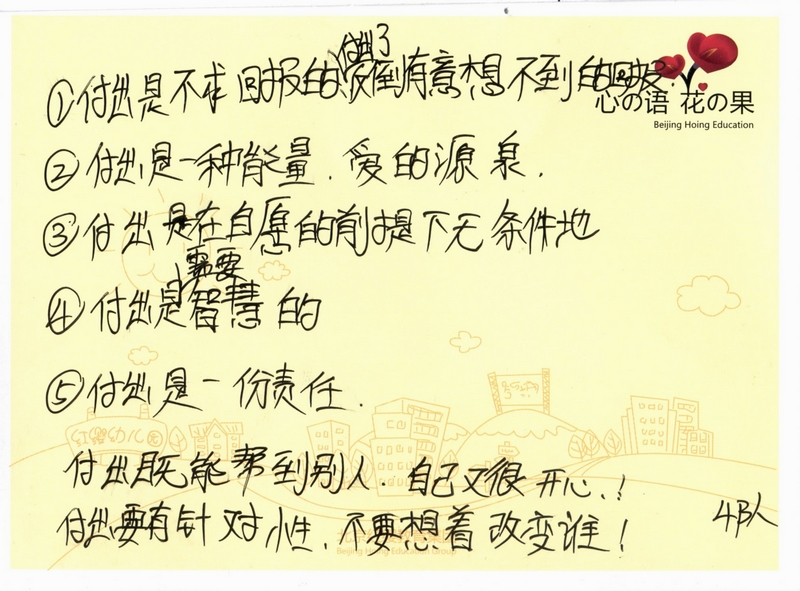 ①付出是不求回报的付出了没有意想不到的回报.
心の语 花の果
Beijing Hoing Education
②付出是一种能量.爱的源泉.
③付出是在自愿的前提下无条件地
④付出是需要智慧的
⑤付出是一份责任.
红缨幼儿园
付出既能帮到别人.自己又很开心.!
付出要有针对性.不要想着改变谁!
Beijing Hoing Education Group